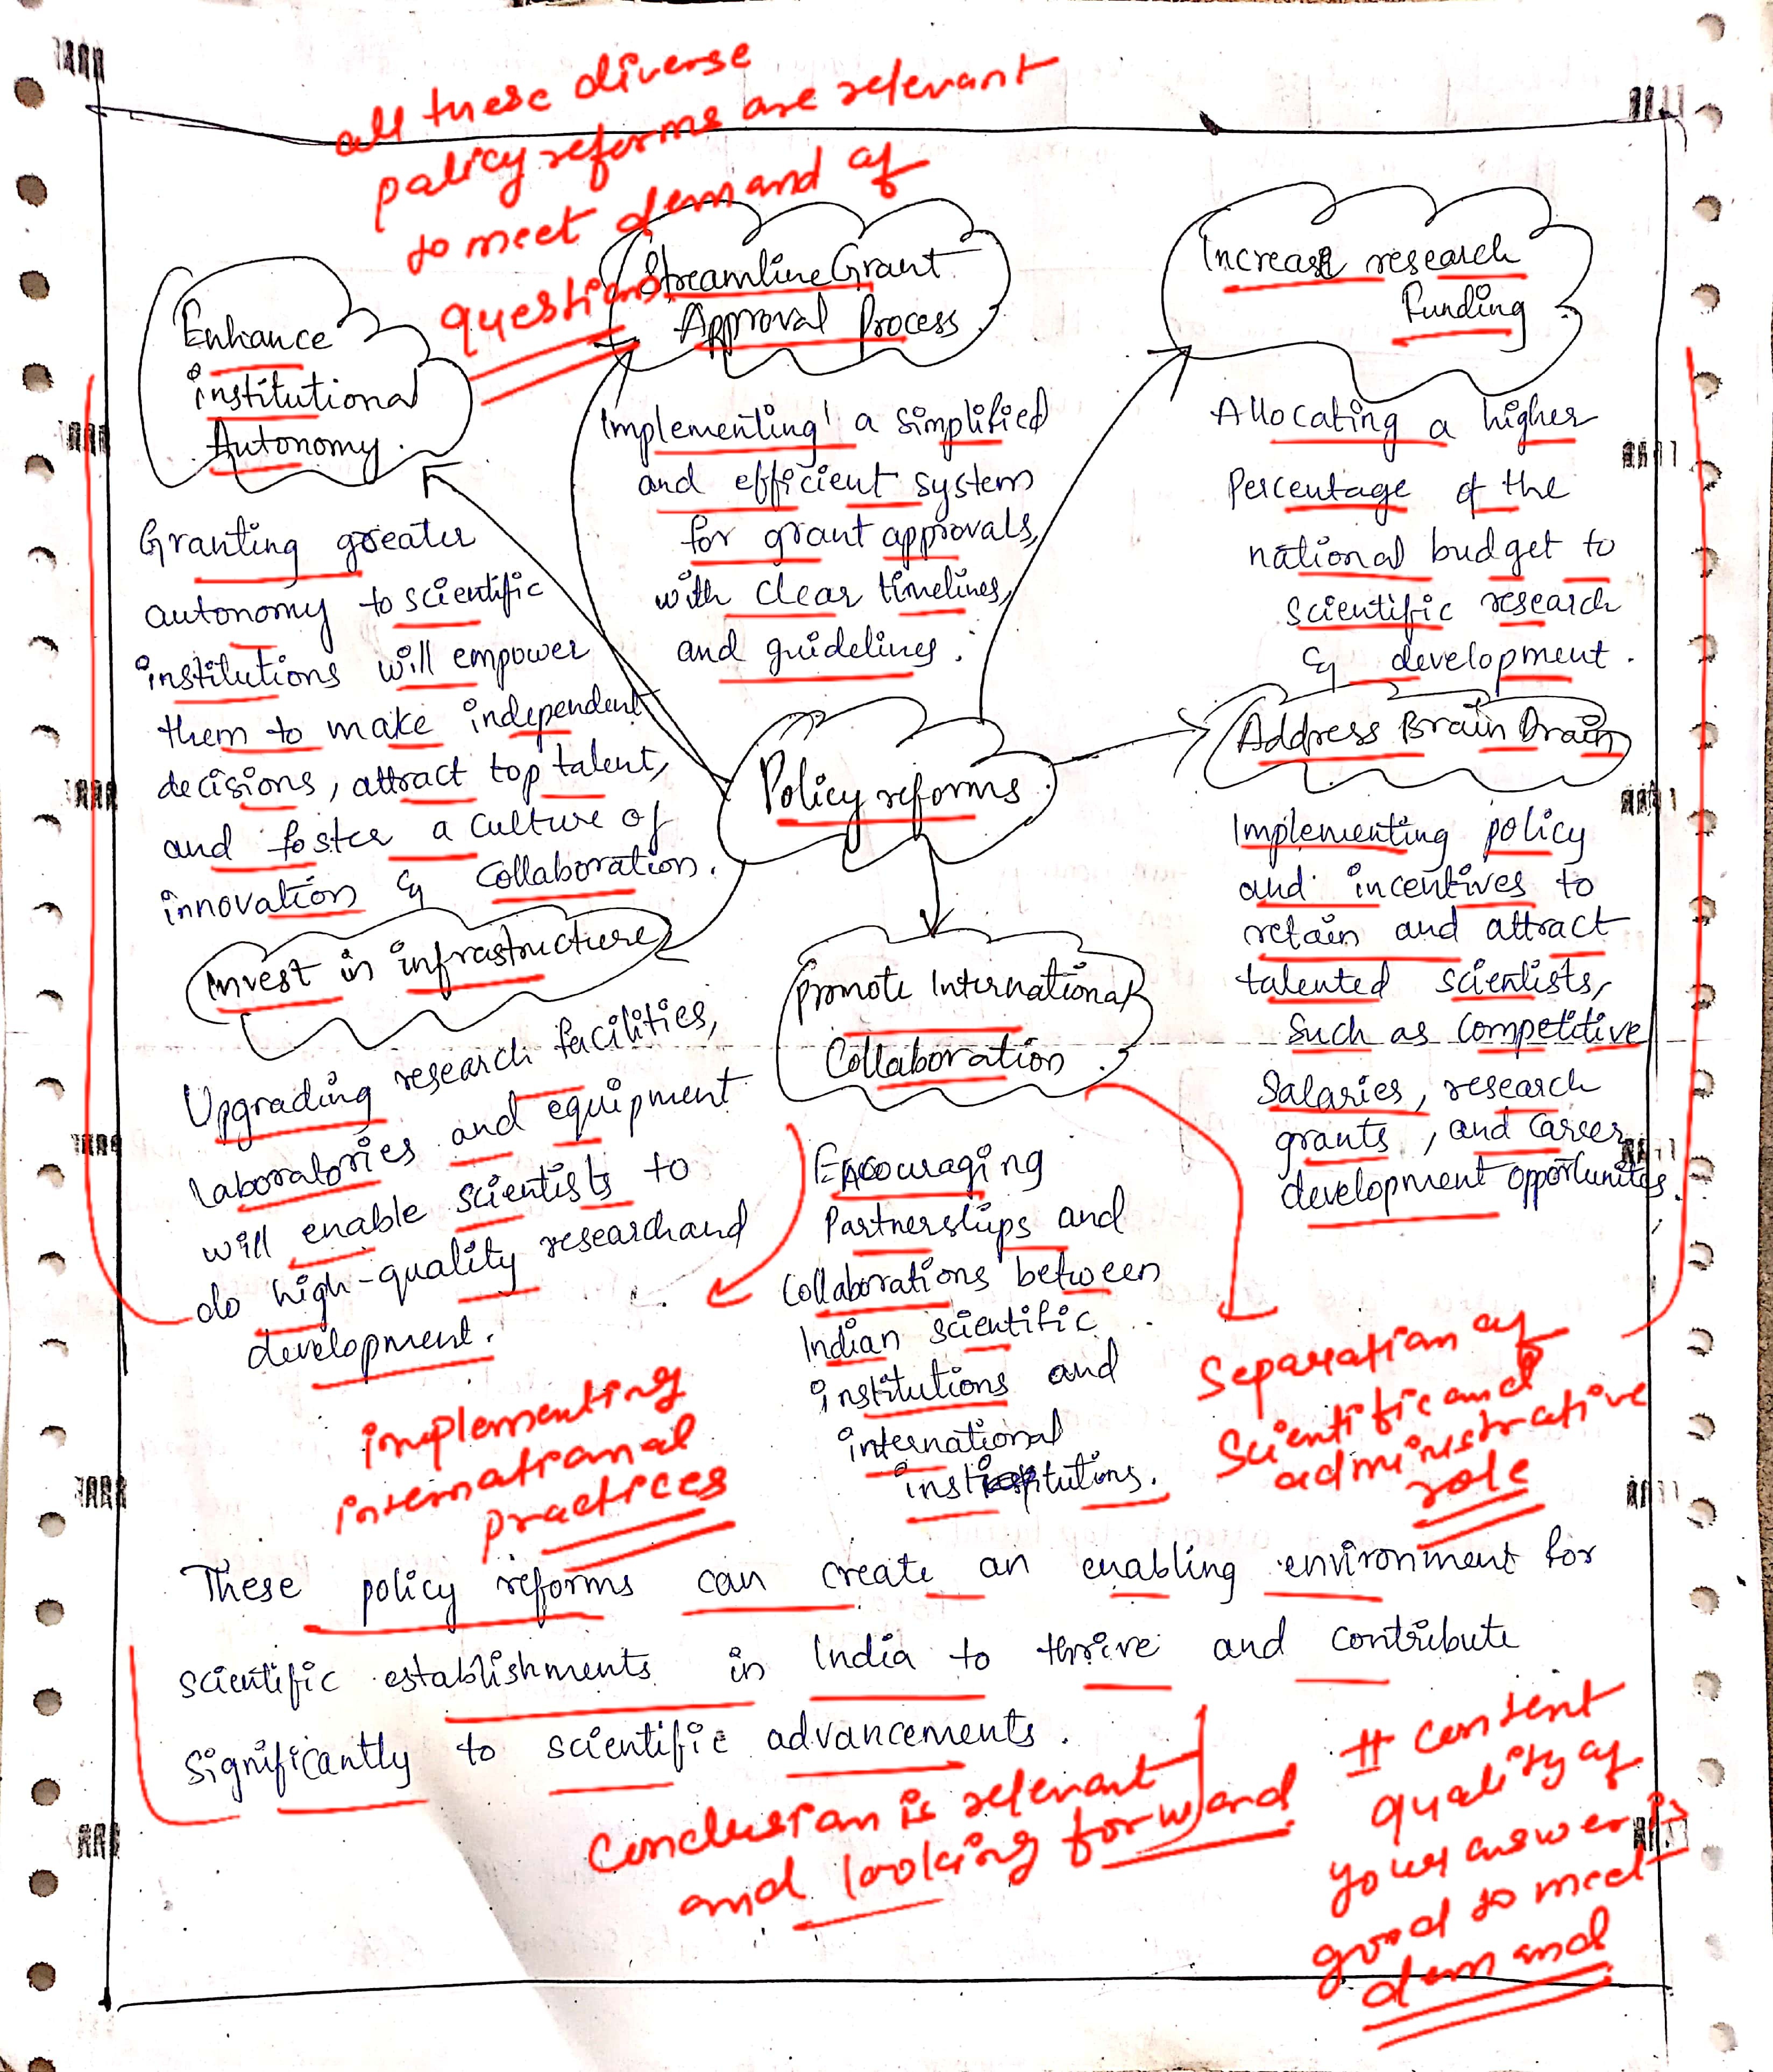 all these diverse
policy reforms are relevant
to meet demand of
question
Enhance
institutional
Autonomy.
Granting greater
autonomy to scientific
institutions will empower
them to make independent
decisions, attract top talent,
and foster a culture of
innovation & Collaboration.
Streamline Grant
Approval Process.
Implementing a simplified
and efficient system
for grant approvals,
with clear timelines,
and guidelines.
Increase research
Funding
Allocating a higher
Percentage of the
national budget to
scientific research
& development.
Policy reforms
Address Brain Drain
Implementing policy
and incentives to
retain and attract
talented scientists,
such as competitive
salaries, research
grants, and career
development opportunites.
Invest in infrastructure
Upgrading research facilities,
laboratories and equipment
will enable scientists to
do high-quality research and
development.
Promote International
Collaboration.
Encouraging
Partnerships and
Collaborations between
Indian scientific
institutions and
international
institutions.
implementing
international
practices
Separation of
Scientific and
administrative
role
These policy reforms can create an enabling environment for
scientific establishments in India to thrive and contribute
significantly to scientific advancements.
Conclusion is relevant
and looking forward
# content
quality of
your answer is
good to meet
demand